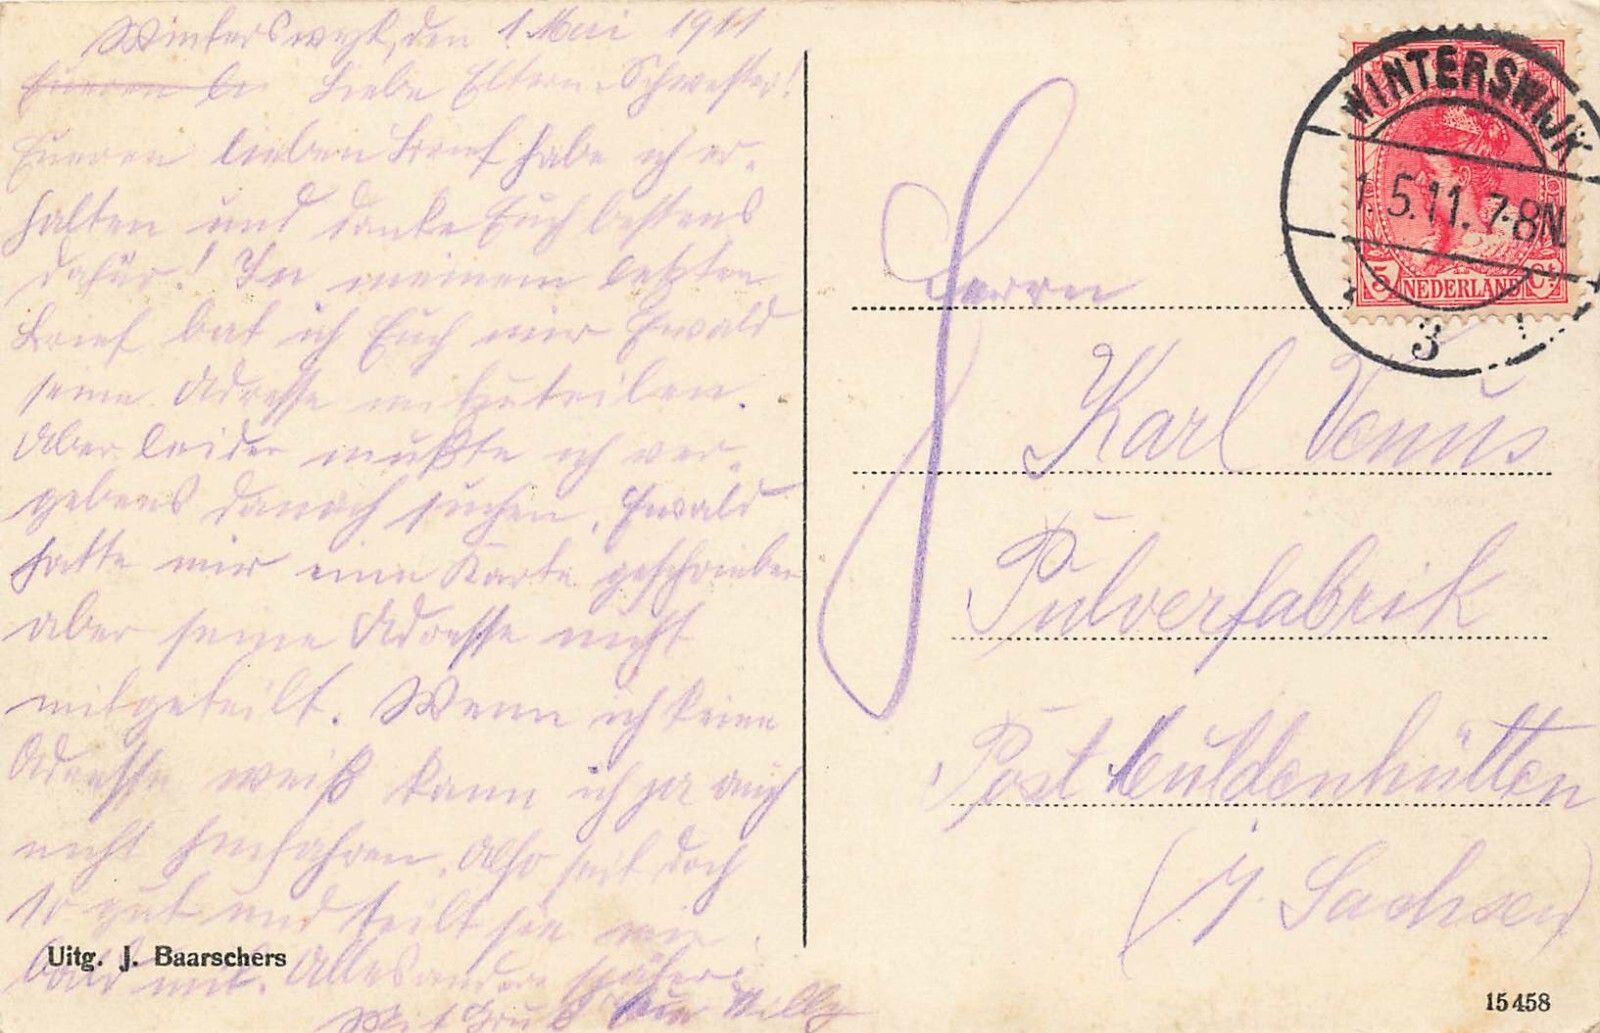 Winterswyk, den 1. Mai 1911
Liebe Eltern u. Schwester!
Eueren lieben Brief habe ich er-
halten und danke Euch bestens
dafür! In meinem letzten
Brief bat ich Euch mir Ewald
seine Adresse mitzuteilen.
Aber leider mußte ich ver-
gebens danach suchen. Ewald
hatte mir eine Karte geschrieben
aber seine Adresse nicht
mitgeteilt. Wenn ich keine
Adresse weiß kann ich ja auch
nicht hinfahren. Also seit doch
so gut und teilt sie mir
bald mit. Alles andere später.
Mit Gruß Euer Willy
Uitg. J. Baarschers
WINTERSWIJK
1.5.11. 7-8N
3
5 NEDERLAND Ct
Herrn
Karl Venus
Pulverfabrik
Post Muldenhütten
(i. Sachsen)
15458